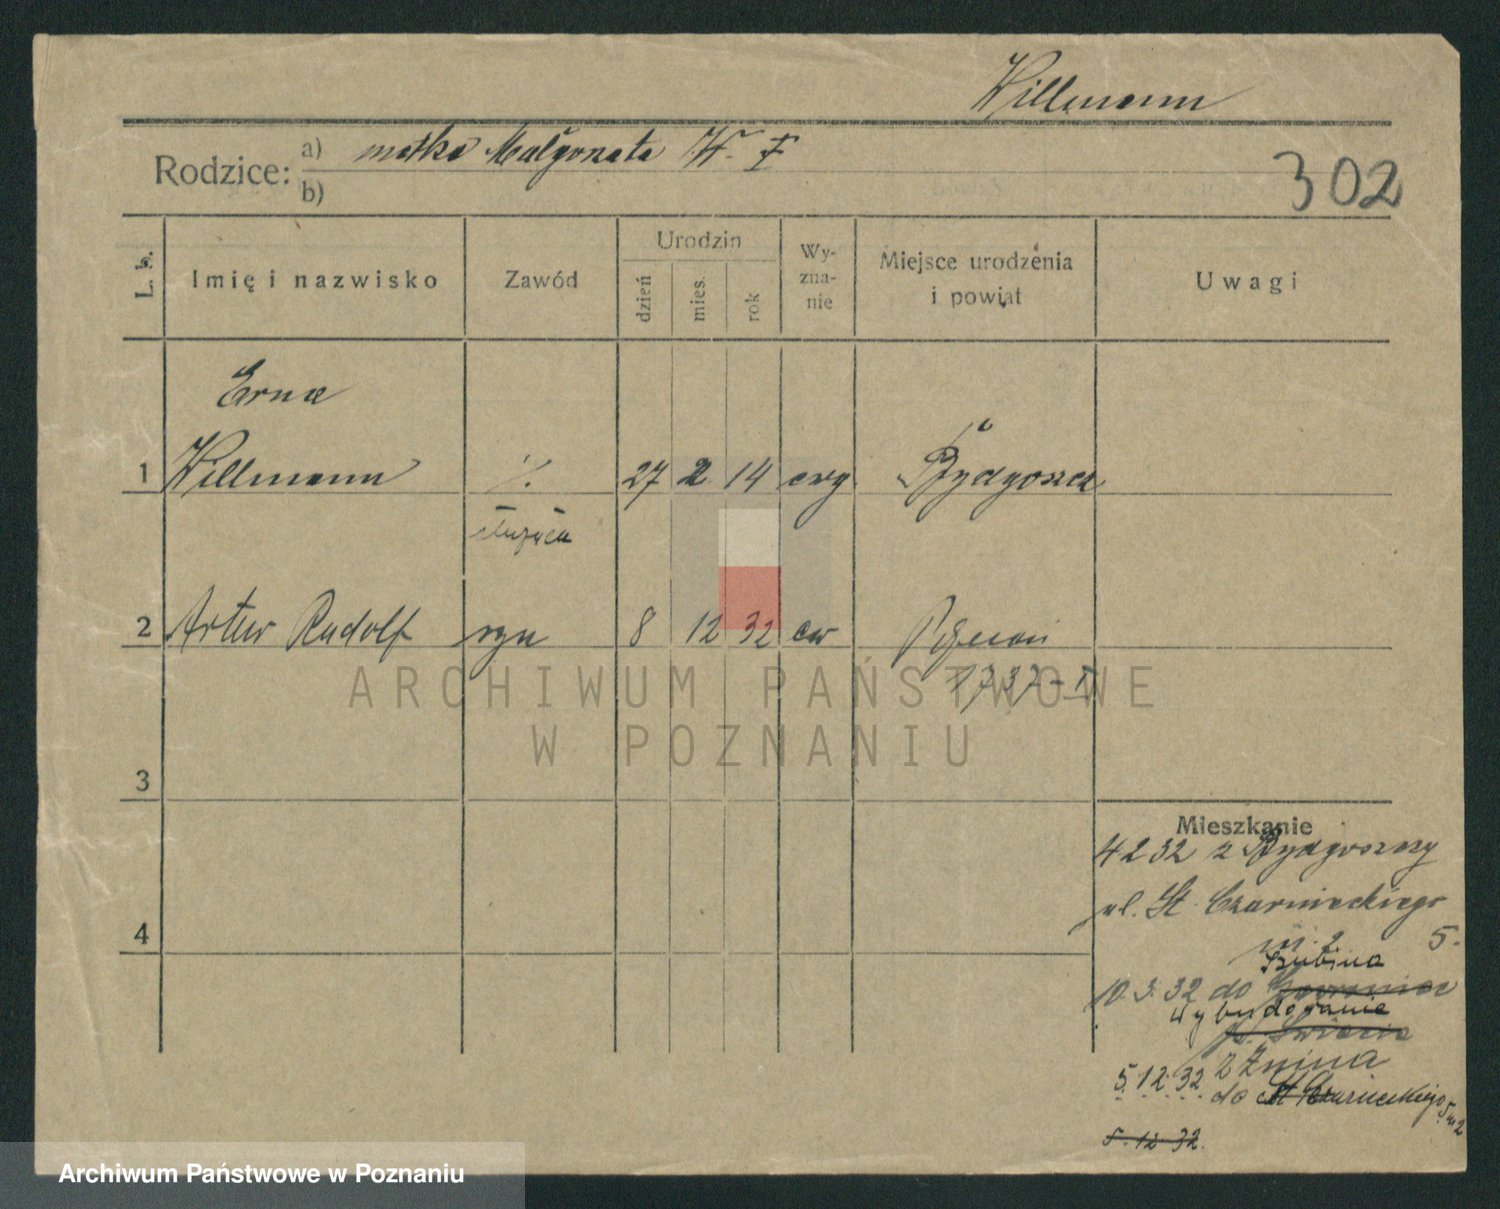 Willmann
Rodzice: a) matka Małgorzata W.
b)
302
L. b. Imię i nazwisko Zawód Urodzin dzień mies. rok Wyznanie Miejsce urodzenia i powiat Uwagi
Erna
1 Willmann ./. 27 2 14 ewg Bydgoszcz
służąca
2 Artur Rudolf syn 8 12 32 ew Poznań
1737-I
3
4
Mieszkanie
4 2 32 z Bydgoszczy
ul. St. Czarnieckiego
5.
m. 2
Szubina
10.3.32 do
Wybudowanie
z Żnina
5.12.32
do St Czarnieckiego 5 m 2
5.12.32.
ARCHIWUM PAŃSTWOWE
W POZNANIU
Archiwum Państwowe w Poznaniu